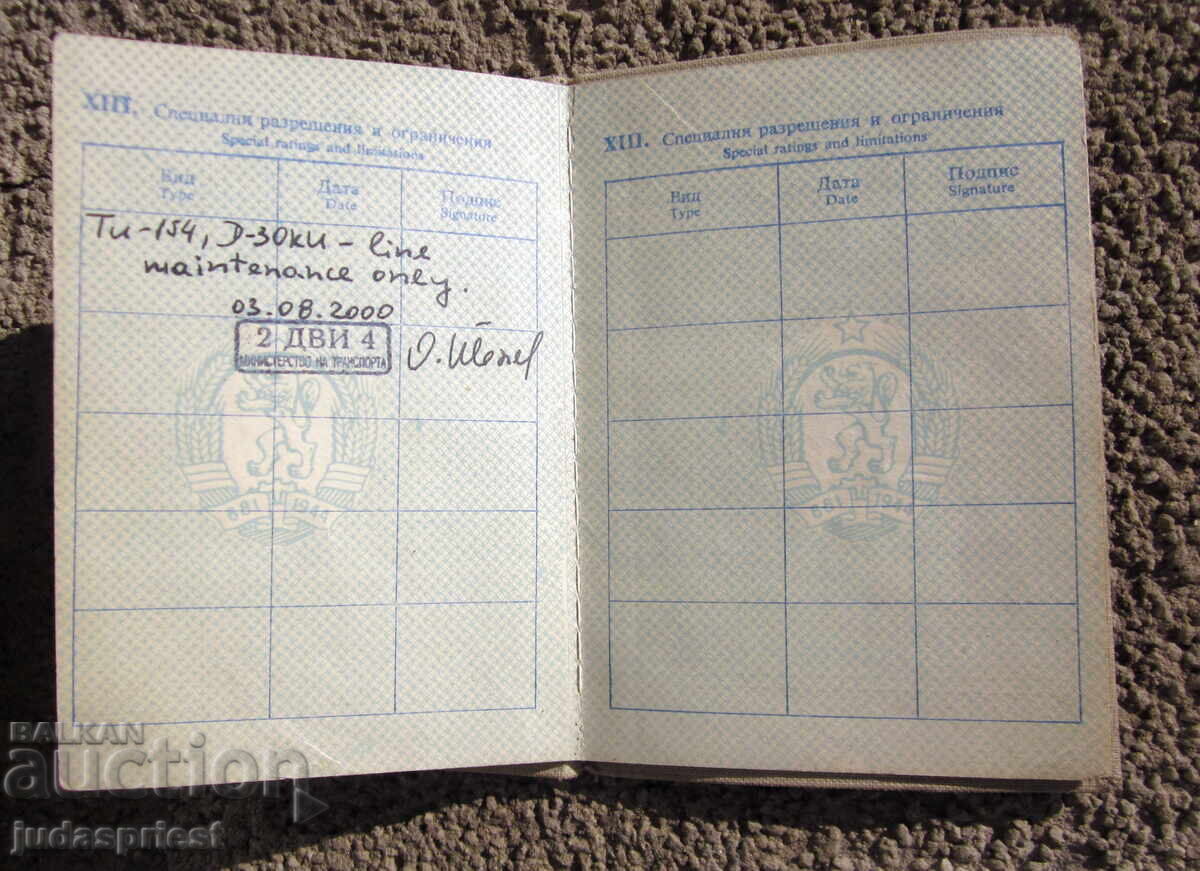 XIII. Специални разрешения и ограничения
Special ratings and limitations
Вид
Type
Дата
Date
Подпис
Signature
Tu-154, Д-30КU - line
maintenance only.
03.08.2000
2 ДВИ 4
МИНИСТЕРСТВО НА ТРАНСПОРТА
681 1944
XIII. Специални разрешения и ограничения
Special ratings and limitations
Вид
Type
Дата
Date
Подпис
Signature
681 1944
BALKAN
auction
judaspriest